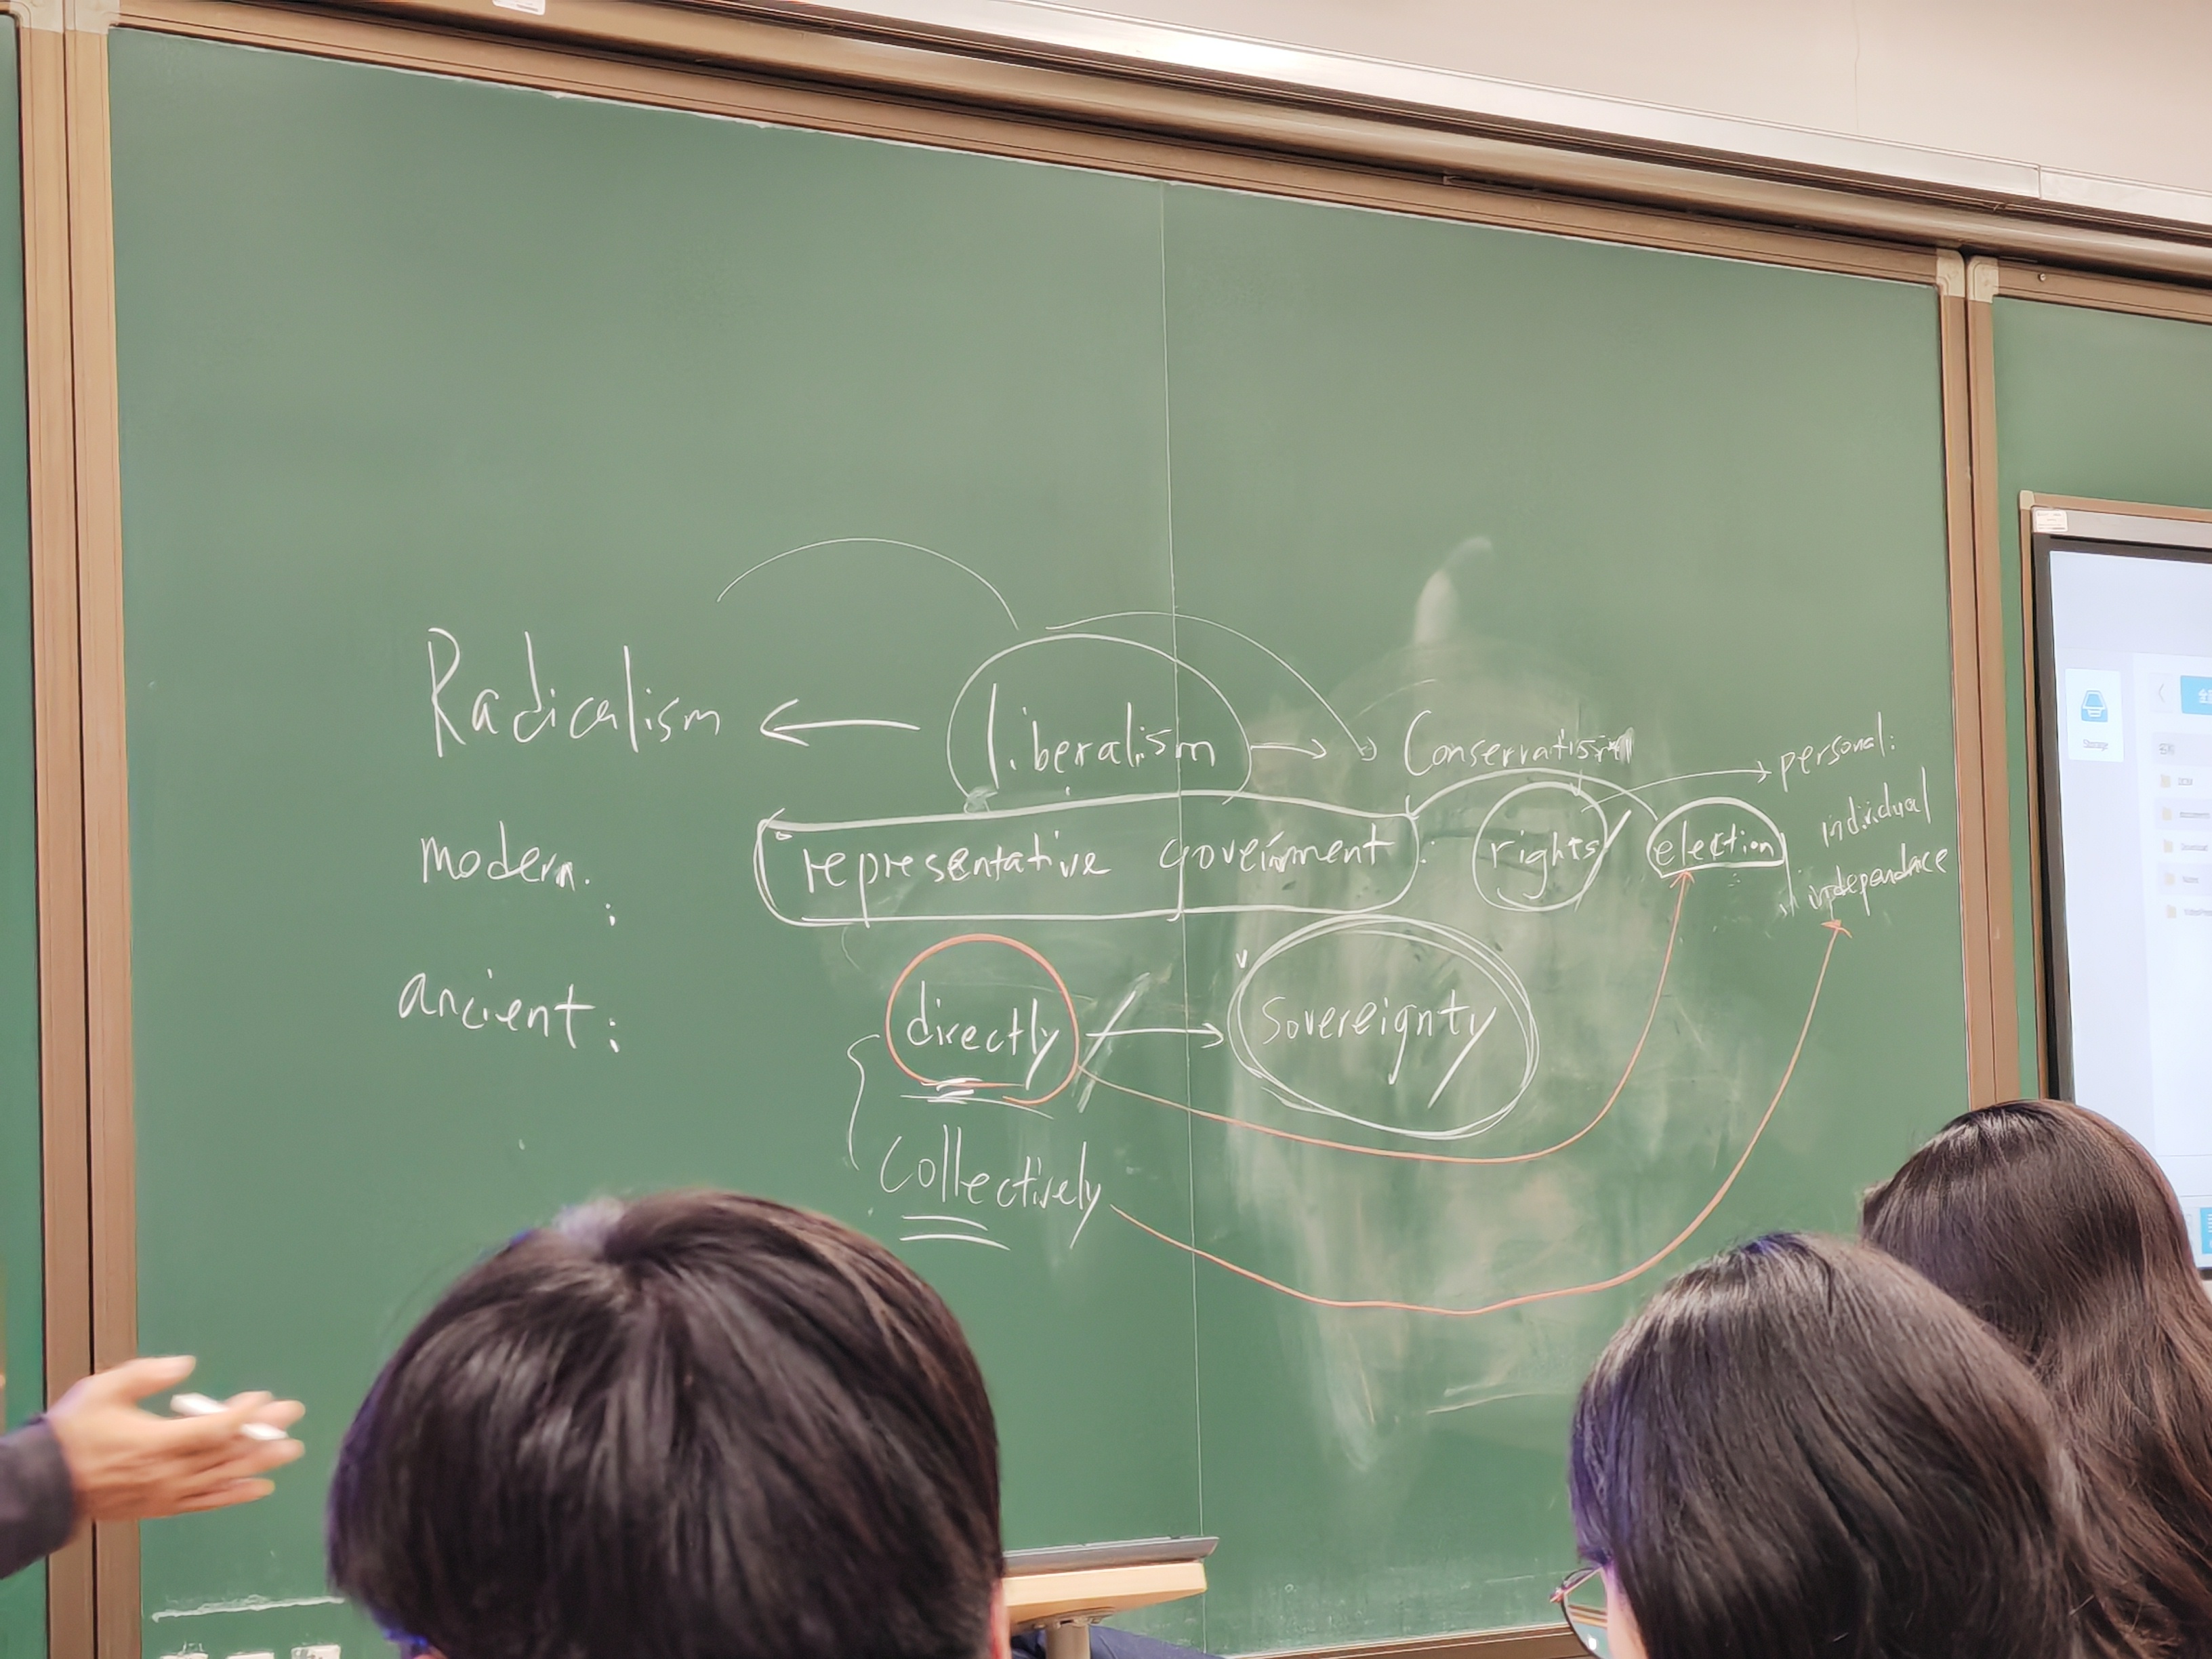 Radicalism ← liberalism → Conservatism
modern: representative government: rights election personal:
individual
independence
ancient: directly → Sovereignty
Collectively
Storage